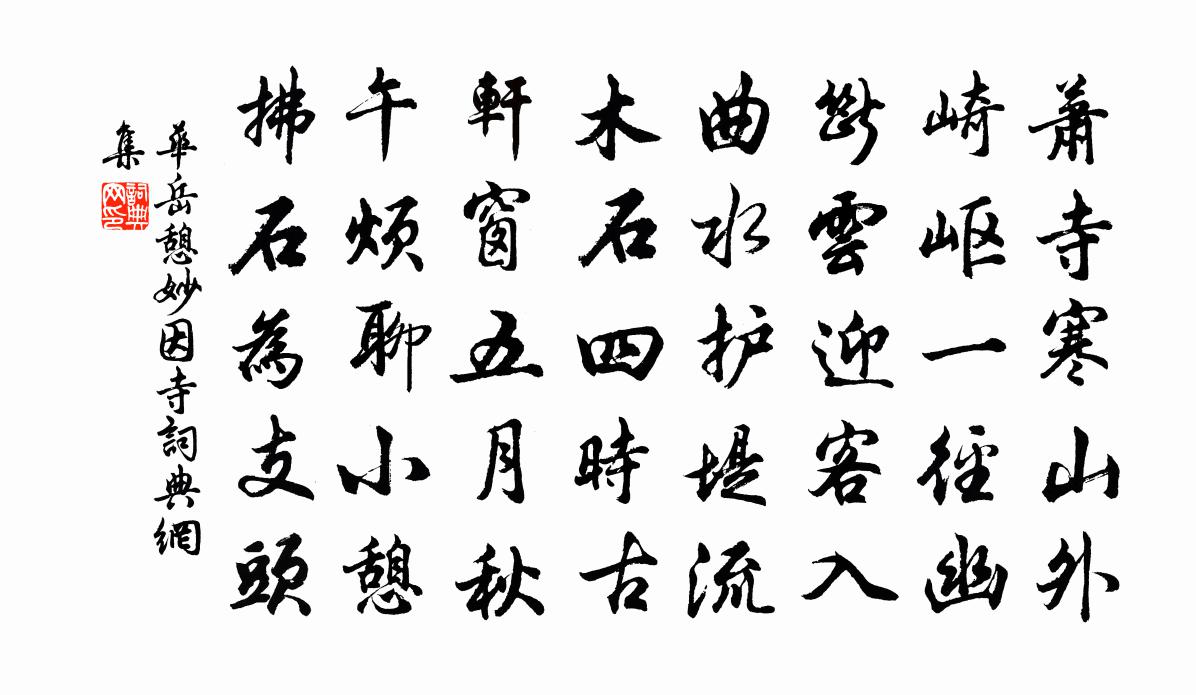 蕭寺寒山外
崎岖一徑幽
斷雲迎客入
曲水护堤流
木石四時古
軒窗五月秋
午煩聊小憩
拂石為支頭
華岳憩妙因寺詞典網
集
詞典网印